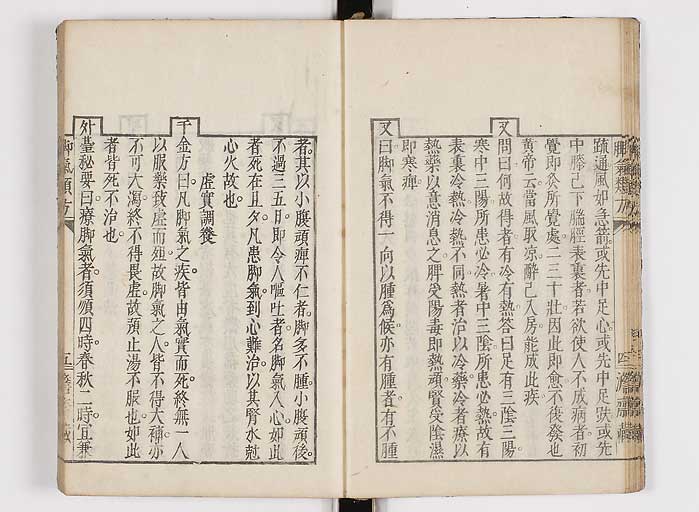 疏通風如急箭或先中足心或先中足趺或先
中膝已下腨脛表裏者若欲使人不成病者初
覺即灸所覺處二三十壯因此即愈不復發也
黃帝云當風取涼醉已入房能成此疾
又問曰何故得者有冷有熱答曰足有三陰三陽
寒中三陽所患必冷暑中三陰所患必熱故有
表裏冷熱冷熱不同熱者治以冷藥冷者療以
熱藥以意消息之脾受陽毒即熱頑腎受陰濕
即寒痺
又曰脚氣不得一向以腫為候亦有腫者有不腫
者其以小腹頭痺不仁者脚多不腫小腹頑後
不過三五日即令人嘔吐者名脚氣入心如此
者死在旦夕凡患脚氣到心難治以其腎水尅
心火故也
虛實調發
千金方曰凡脚氣之疾皆由氣實而死終無一人
以服藥致虛而殂故脚氣之人皆不得大補亦
不可大瀉終不得畏虛故預止湯不服也如此
者皆死不治也
外臺秘要曰療脚氣者須順四時春秋二時宜兼
脚氣類方